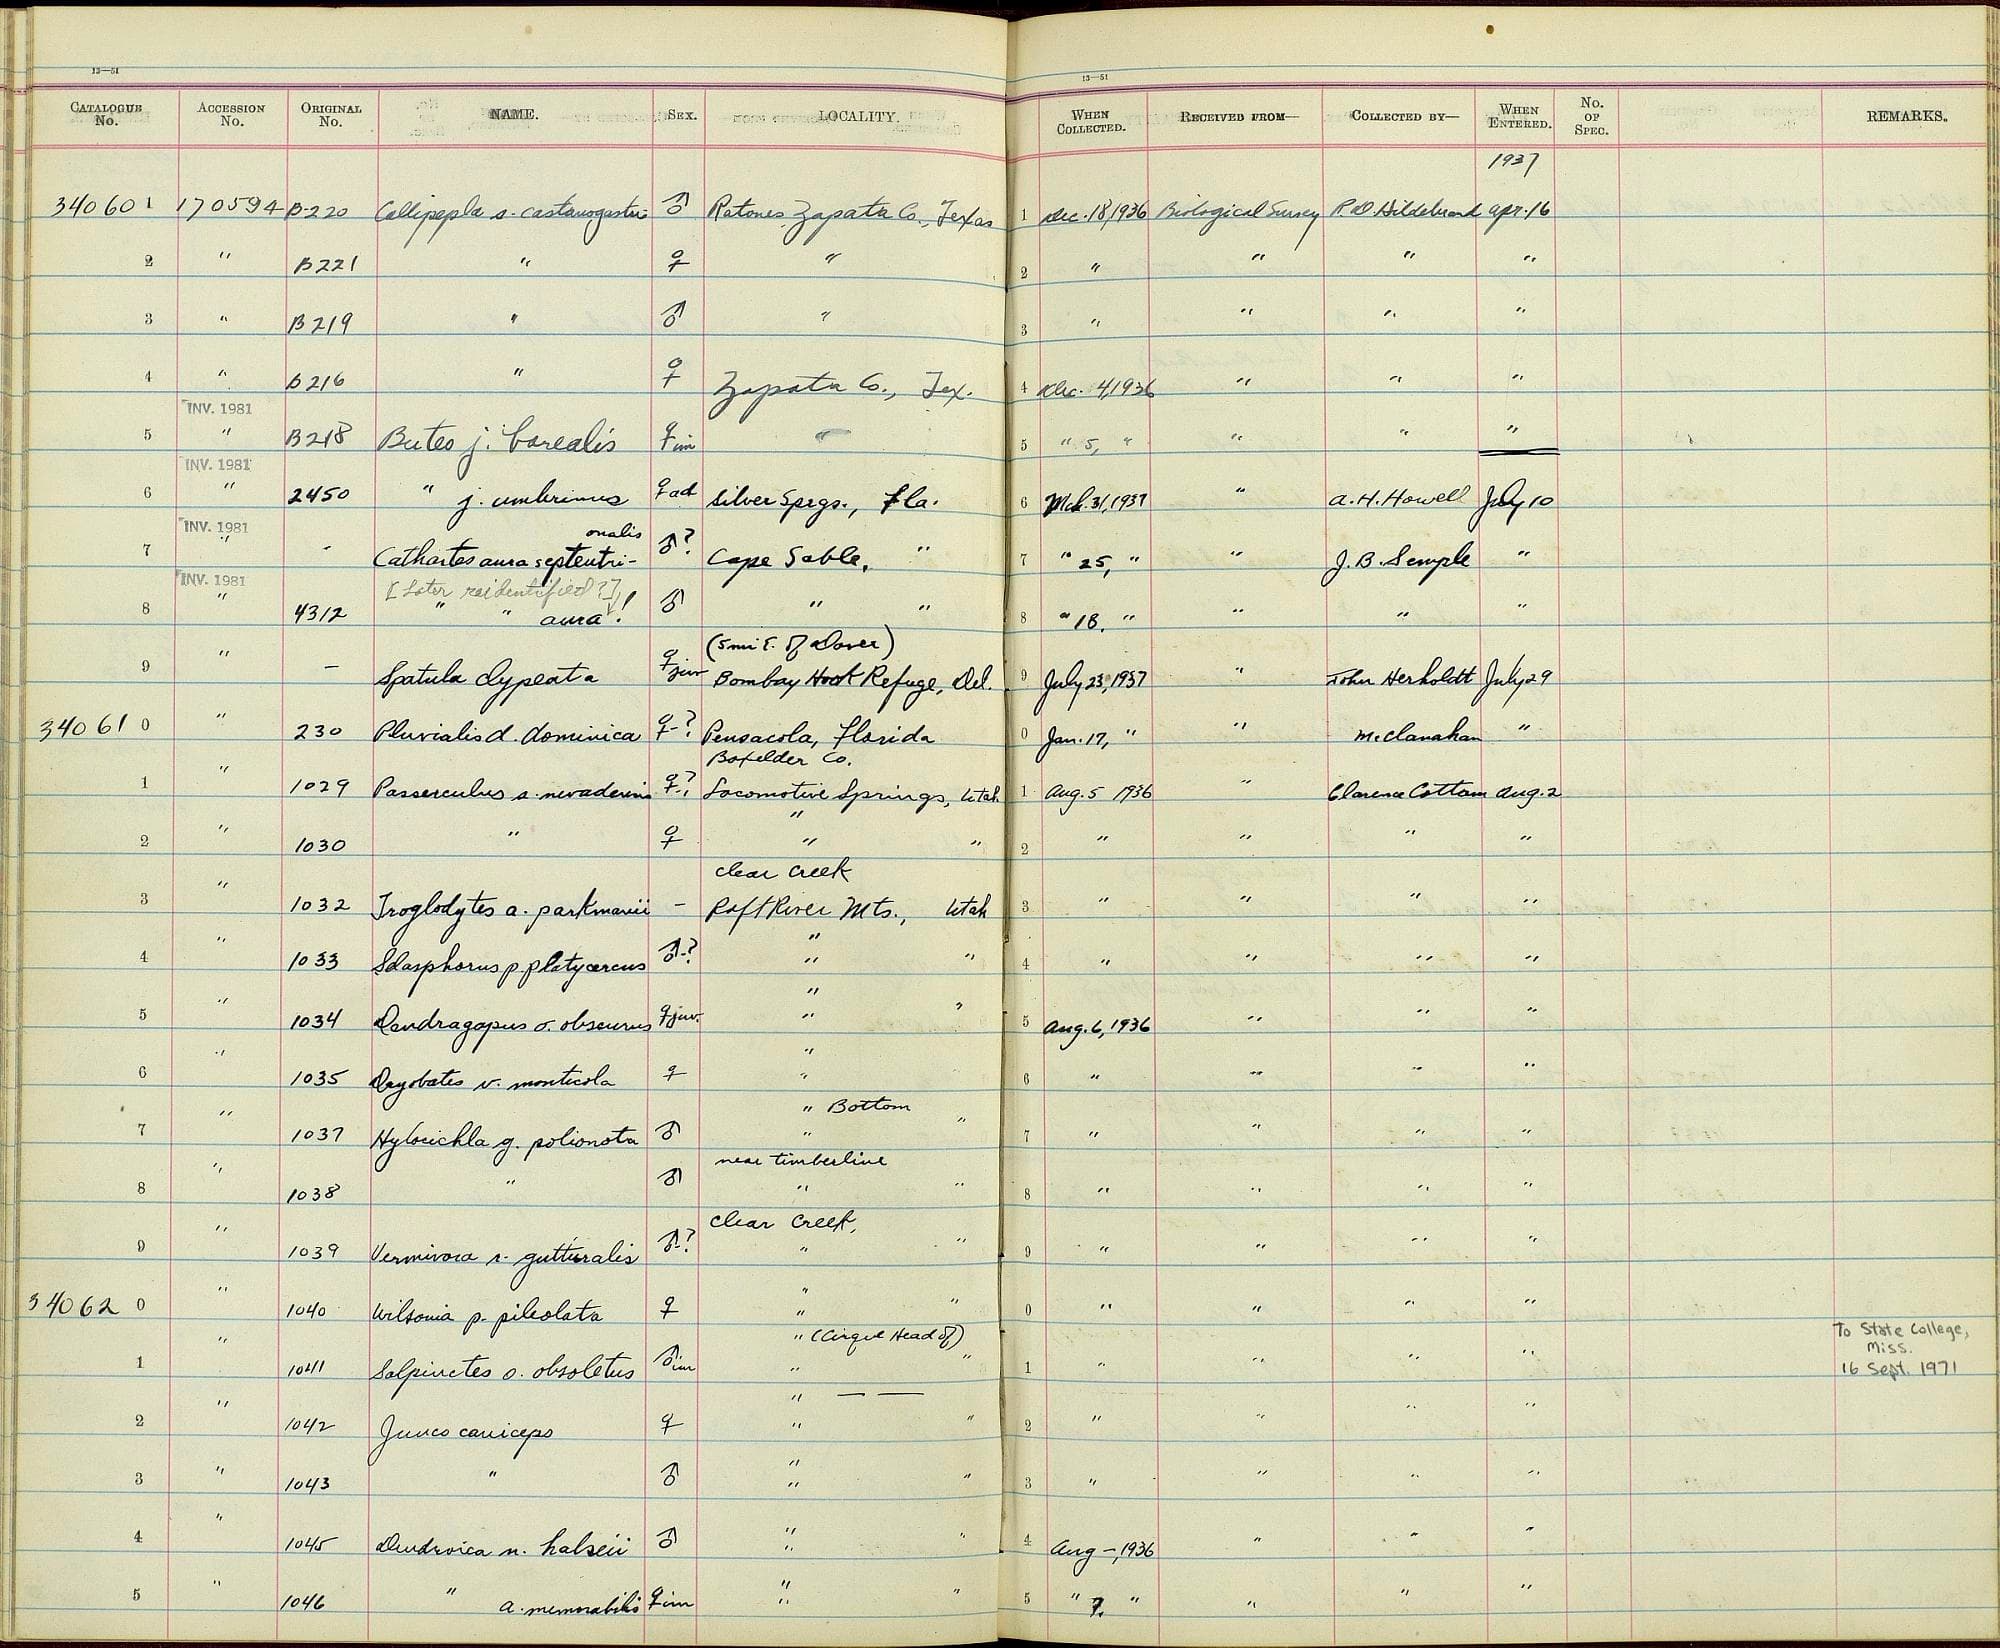 13—51
13—51
CATALOGUE No. ACCESSION No. ORIGINAL No. NAME. SEX. LOCALITY. WHEN COLLECTED. RECEIVED FROM— COLLECTED BY— WHEN ENTERED. No. OF SPEC. REMARKS.
1937
340601 170594 B-220 Callipepla s. castanogastris ♂ Ratones, Zapata Co., Texas 1 Dec. 18, 1936 Biological Survey P.D. Hildebrand Apr. 16
2 " B221 " ♀ " 2 " " " "
3 " B219 " ♂ " 3 " " " "
4 " B216 " ♀ Zapata Co., Tex. 4 Dec. 4, 1936 " " "
INV. 1981
5 " B218 Buteo j. borealis ♀ im " 5 " 5, " " " "
INV. 1981
6 " 2450 " j. umbrinus ♀ ad Silver Sprgs., Fla. 6 Mch. 31, 1937 " A. H. Howell July 10
INV. 1981
onalis
7 " - Cathartes aura septentri- ♂? Cape Sable, " 7 " 25, " " J. B. Semple "
INV. 1981
[Later reidentified?]
8 " 4312 " " aura! ♂ " " 8 " 18, " " " "
(5 mi E. of Dover)
9 " – Spatula clypeata ♀ juv Bombay Hook Refuge, Del. 9 July 23, 1937 " John Herholdt July 29
340610 " 230 Pluvialis d. dominica ♀-? Pensacola, Florida 0 Jan. 17, " " McClanahan "
Boxelder Co.
1 " 1029 Passerculus s. nevadensis ♀-? Locomotive Springs, Utah 1 Aug. 5 1936 " Clarence Cottam Aug. 2
"
2 " 1030 " ♀ " " 2 " " " "
Clear Creek
3 " 1032 Troglodytes a. parkmanii - Raft River Mts., Utah 3 " " " "
"
4 " 1033 Selasphorus p. platycercus ♂-? " " 4 " " " "
"
5 " 1034 Dendragapus o. obscurus ♀ juv. " " 5 Aug. 6, 1936 " " "
"
6 " 1035 Dryobates v. monticola ♀ " 6 " " " "
" Bottom
7 " 1037 Hylocichla g. polionota ♂ " " 7 " " " "
near timberline
8 " 1038 " ♂ " " 8 " " " "
Clear Creek,
9 " 1039 Vermivora r. gutturalis ♂-? " " 9 " " " "
"
340620 " 1040 Wilsonia p. pileolata ♀ " " 0 " " " "
" (Cirque Head of)
1 " 1041 Salpinctes o. obsoletus ♂ im " " 1 " " " " To State College,
Miss.
16 Sept. 1971
" — —
2 " 1042 Junco caniceps ♀ " " 2 " " " "
"
3 " 1043 " ♂ " " 3 " " " "
"
4 " 1045 Dendroica n. halseii ♂ " " 4 Aug –, 1936 " " "
"
5 " 1046 " a. memorabilis ♀ im " " 5 " 7. " " " "